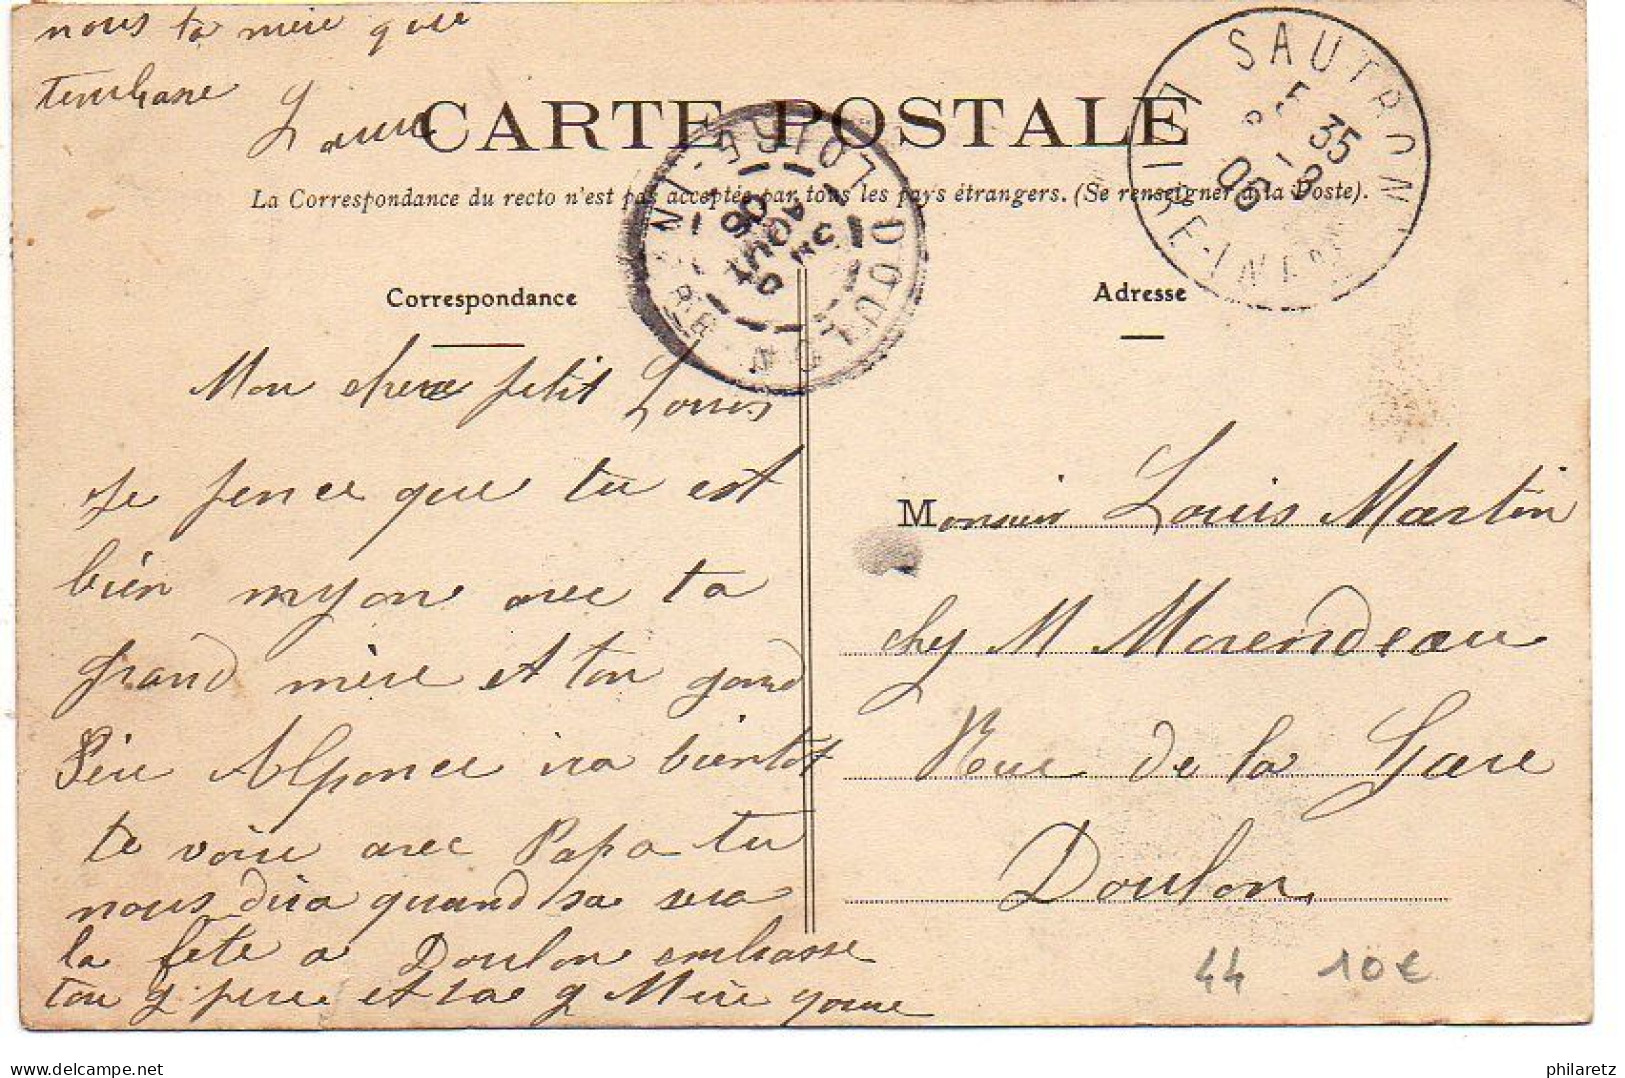 nous ta mère que
t'embrasse
Laure
CARTE POSTALE
La Correspondance du recto n'est pas acceptée par tous les pays étrangers. (Se renseigner à la Poste).
SAUTRON
LOIRE-INFRE
5 35
8
06
DOULON
LOIRE-INFRE
AOUT
06
Correspondance
Adresse
Mon chere petit Louis
Je pence que tu est
bien myon avec ta
grand mère et ton gand
Père Alponce ira bientot
te voire avec Papa tu
nous dira quand sa sera
la fete a Doulon embrasse
ton g pere et ta g Mère
Monsieur Louis Martin
chez M Morendeau
Rue de la Gare
Doulon
44 10€
delcampe.net
philaretz